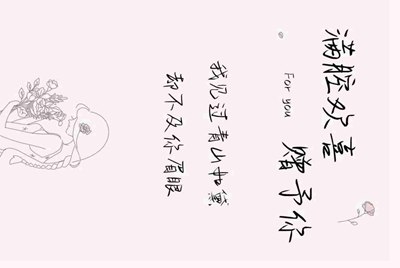 满腔欢喜
赠予你
For you
我见过青山如黛
却不及你眉眼